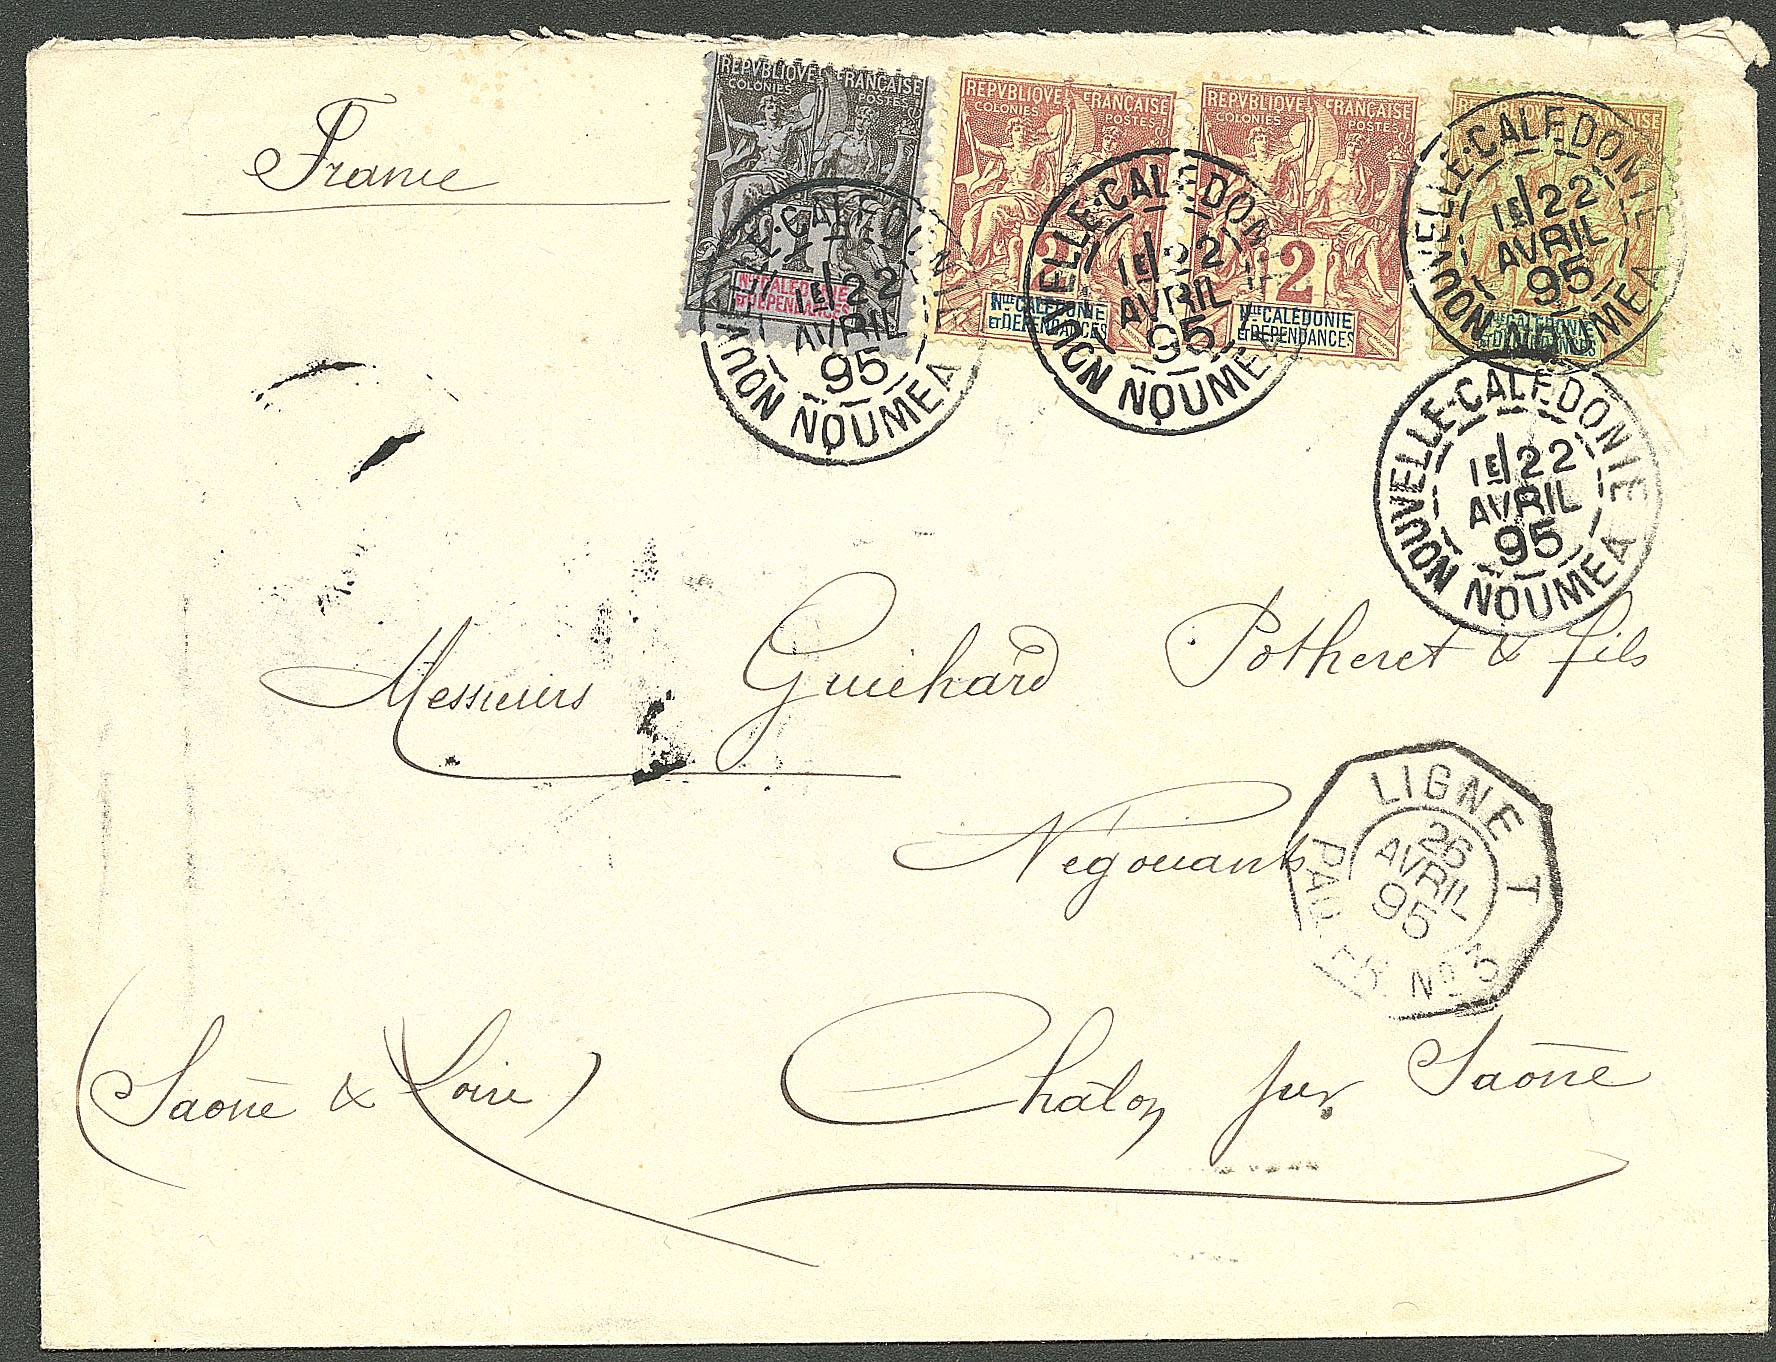 France
REPVBLIQVE FRANÇAISE
COLONIES POSTES
1
Nlle CALEDONIE
ET DEPENDANCES
REPVBLIQVE FRANÇAISE
COLONIES POSTES
2
Nlle CALEDONIE
ET DEPENDANCES
REPVBLIQVE FRANÇAISE
COLONIES POSTES
2
Nlle CALEDONIE
ET DEPENDANCES
REPVBLIQVE FRANÇAISE
Nlle CALEDONIE
ET DEPENDANCES
NOUVELLE-CALEDONIE
1E/22
AVRIL
95
NOUMEA
NOUVELLE-CALEDONIE
1E/22
AVRIL
95
NOUMEA
NOUVELLE-CALEDONIE
1E/22
AVRIL
95
NOUMEA
NOUVELLE-CALEDONIE
1E/22
AVRIL
95
NOUMEA
Messieurs Guichard Potheret & fils
Négociants
LIGNE T
26
AVRIL
95
PAQ. FR. No 3
Châlon sur Saône
(Saône & Loire)